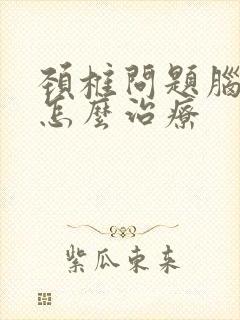 頚椎問題腦
怎麼治療
紫瓜東來